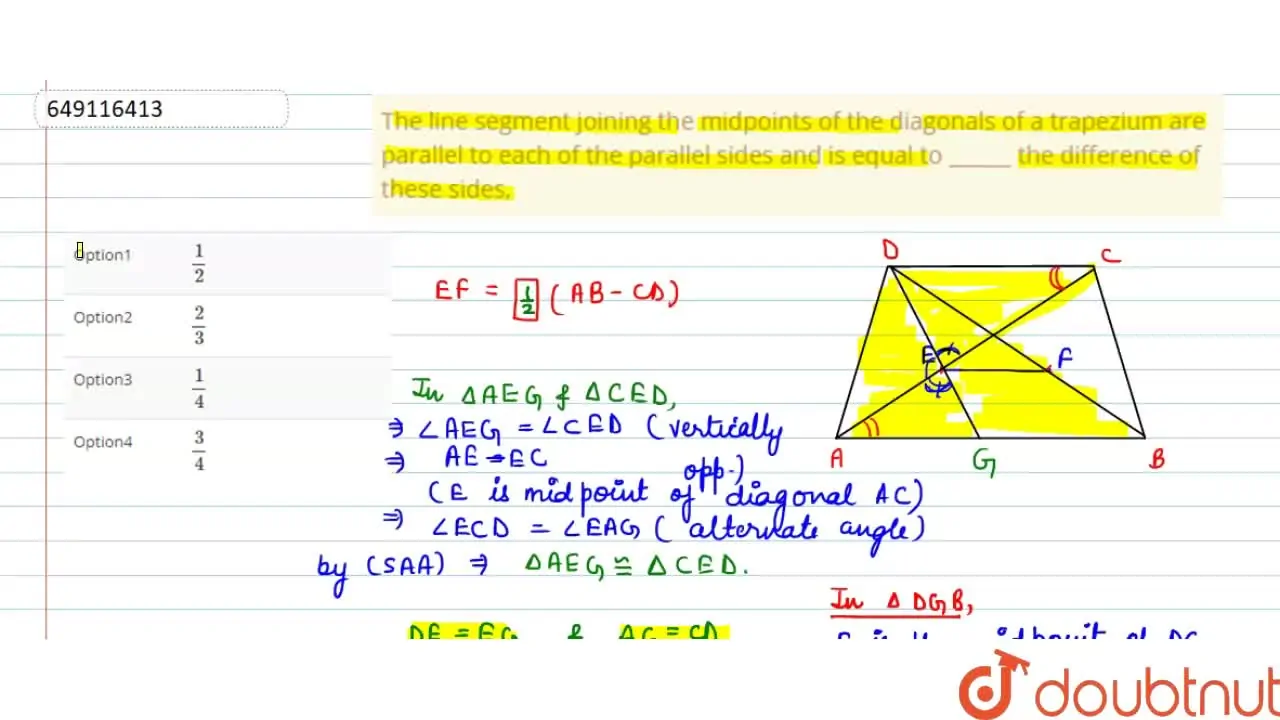 649116413
The line segment joining the midpoints of the diagonals of a trapezium are
parallel to each of the parallel sides and is equal to _____ the difference of
these sides.
Option1 1/2
Option2 2/3
Option3 1/4
Option4 3/4
EF = 1/2 (AB - CD)
D C
E F
A G B
In △AEG & △CED,
⇒ ∠AEG = ∠CED (vertically
opp.)
⇒ AE = EC
(E is midpoint of diagonal AC)
⇒ ∠ECD = ∠EAG (alternate angle)
by (SAA) ⇒ △AEG ≅ △CED.
DE = EG & AG = CD
In △ DGB,
doubtnut